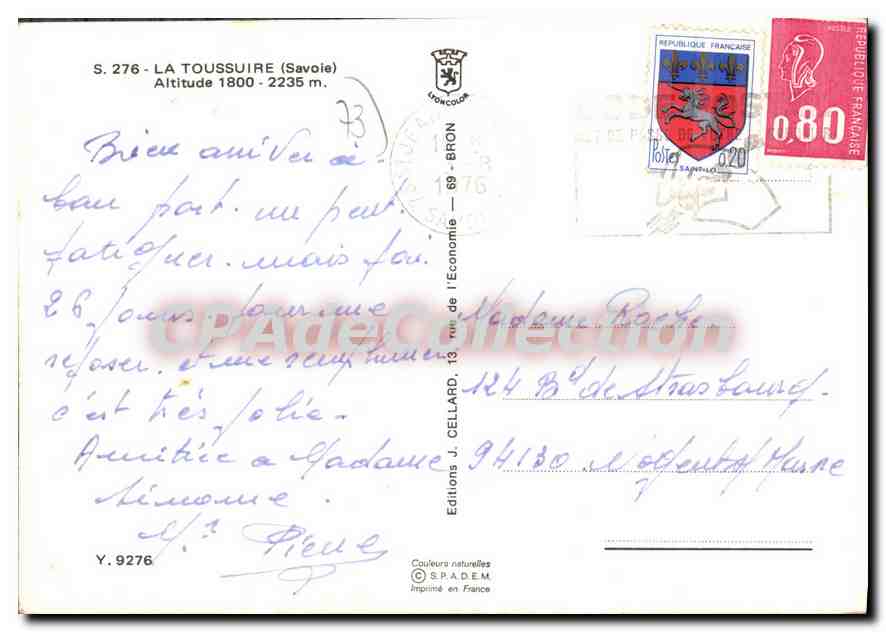 S. 276 - LA TOUSSUIRE (Savoie)
Altitude 1800 - 2235 m.
73
Bien arriver à
bon port. un peut
fatiguer. mais j'ai
26 jours pour me
reposer. et me
c'est très jolie.
Amitiée a Madame
Simone.
Mr Pierre
Y. 9276
LYONCOLOR
Editions J. CELLARD, 13, rue de l'Economie — 69 - BRON
Couleurs naturelles
© S.P.A.D.E.M.
Imprimé en France
1976
REPUBLIQUE FRANÇAISE
POSTES
0,20
SAINT-LO
0,80
REPUBLIQUE FRANÇAISE
Madame Roche
124 Bd de Strasbourg
94130 Nogent s/ Marne
CPAdeCollection